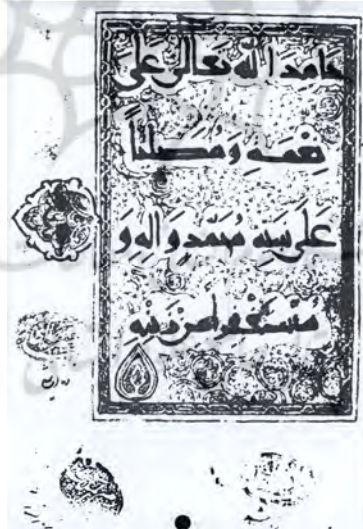 حَامِدًا اللّٰه تَعَالَى عَلَى
نِعَمِهِ وَ مُصَلِّيًا
عَلَى نَبِيِّهِ مُحَمَّدٍ وَ اٰلِهِ وَ
مُسْتَغْفِرًا مِنْ ذَنْبِهِ